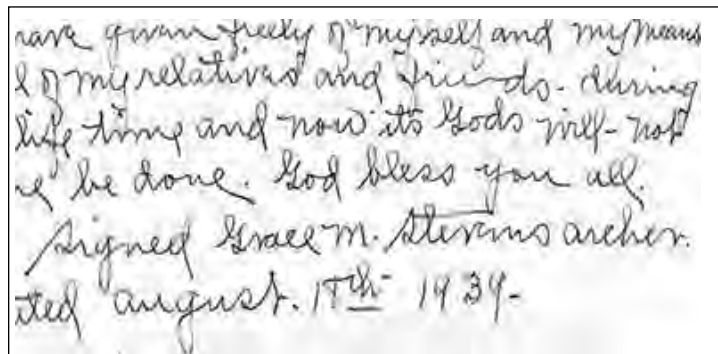 have given freely of myself and my means
of my relatives and friends - during
life time and now its Gods will - not
be done. God bless you all.
Signed Grace M. Stevens Archer.
august. 1939-